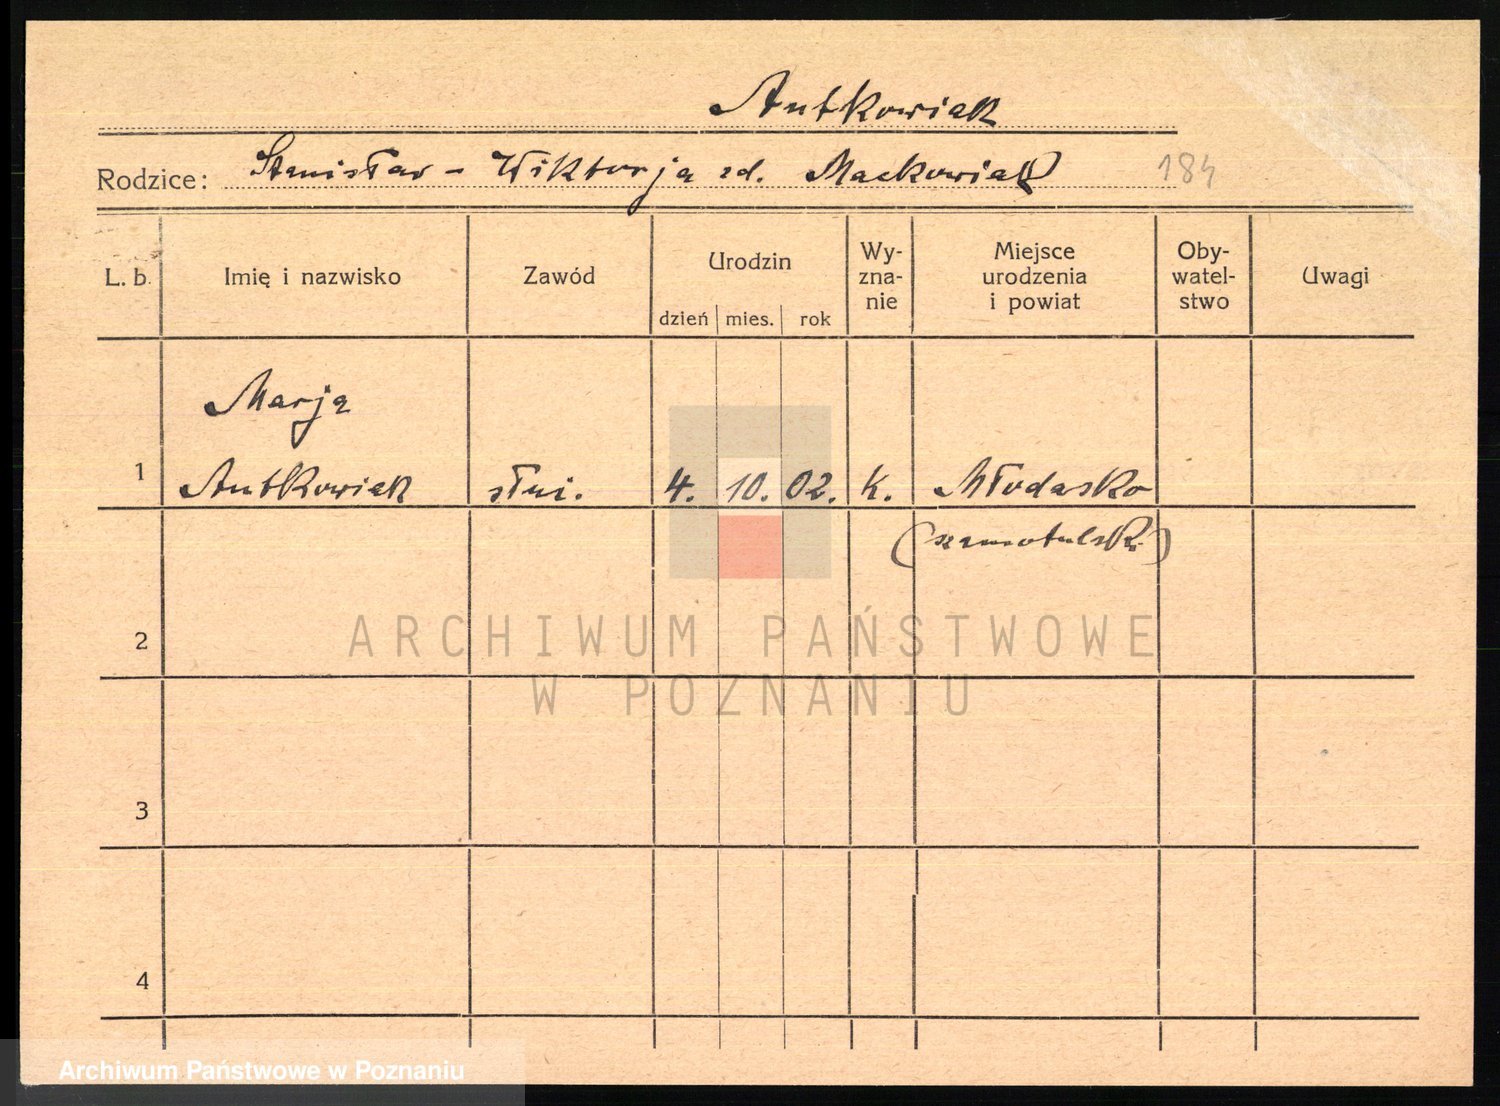 Antkowiak
Rodzice: Stanisław - Wiktorja zd. Maćkowiak 184
L. b. Imię i nazwisko Zawód Urodzin Wy- Miejsce Oby- Uwagi
zna- urodzenia watel-
nie i powiat stwo
dzień mies. rok
Marja
1 Antkowiak służ. 4. 10. 02. k. Młodasko
(szamotulski)
2
ARCHIWUM PAŃSTWOWE
W POZNANIU
3
4
Archiwum Państwowe w Poznaniu